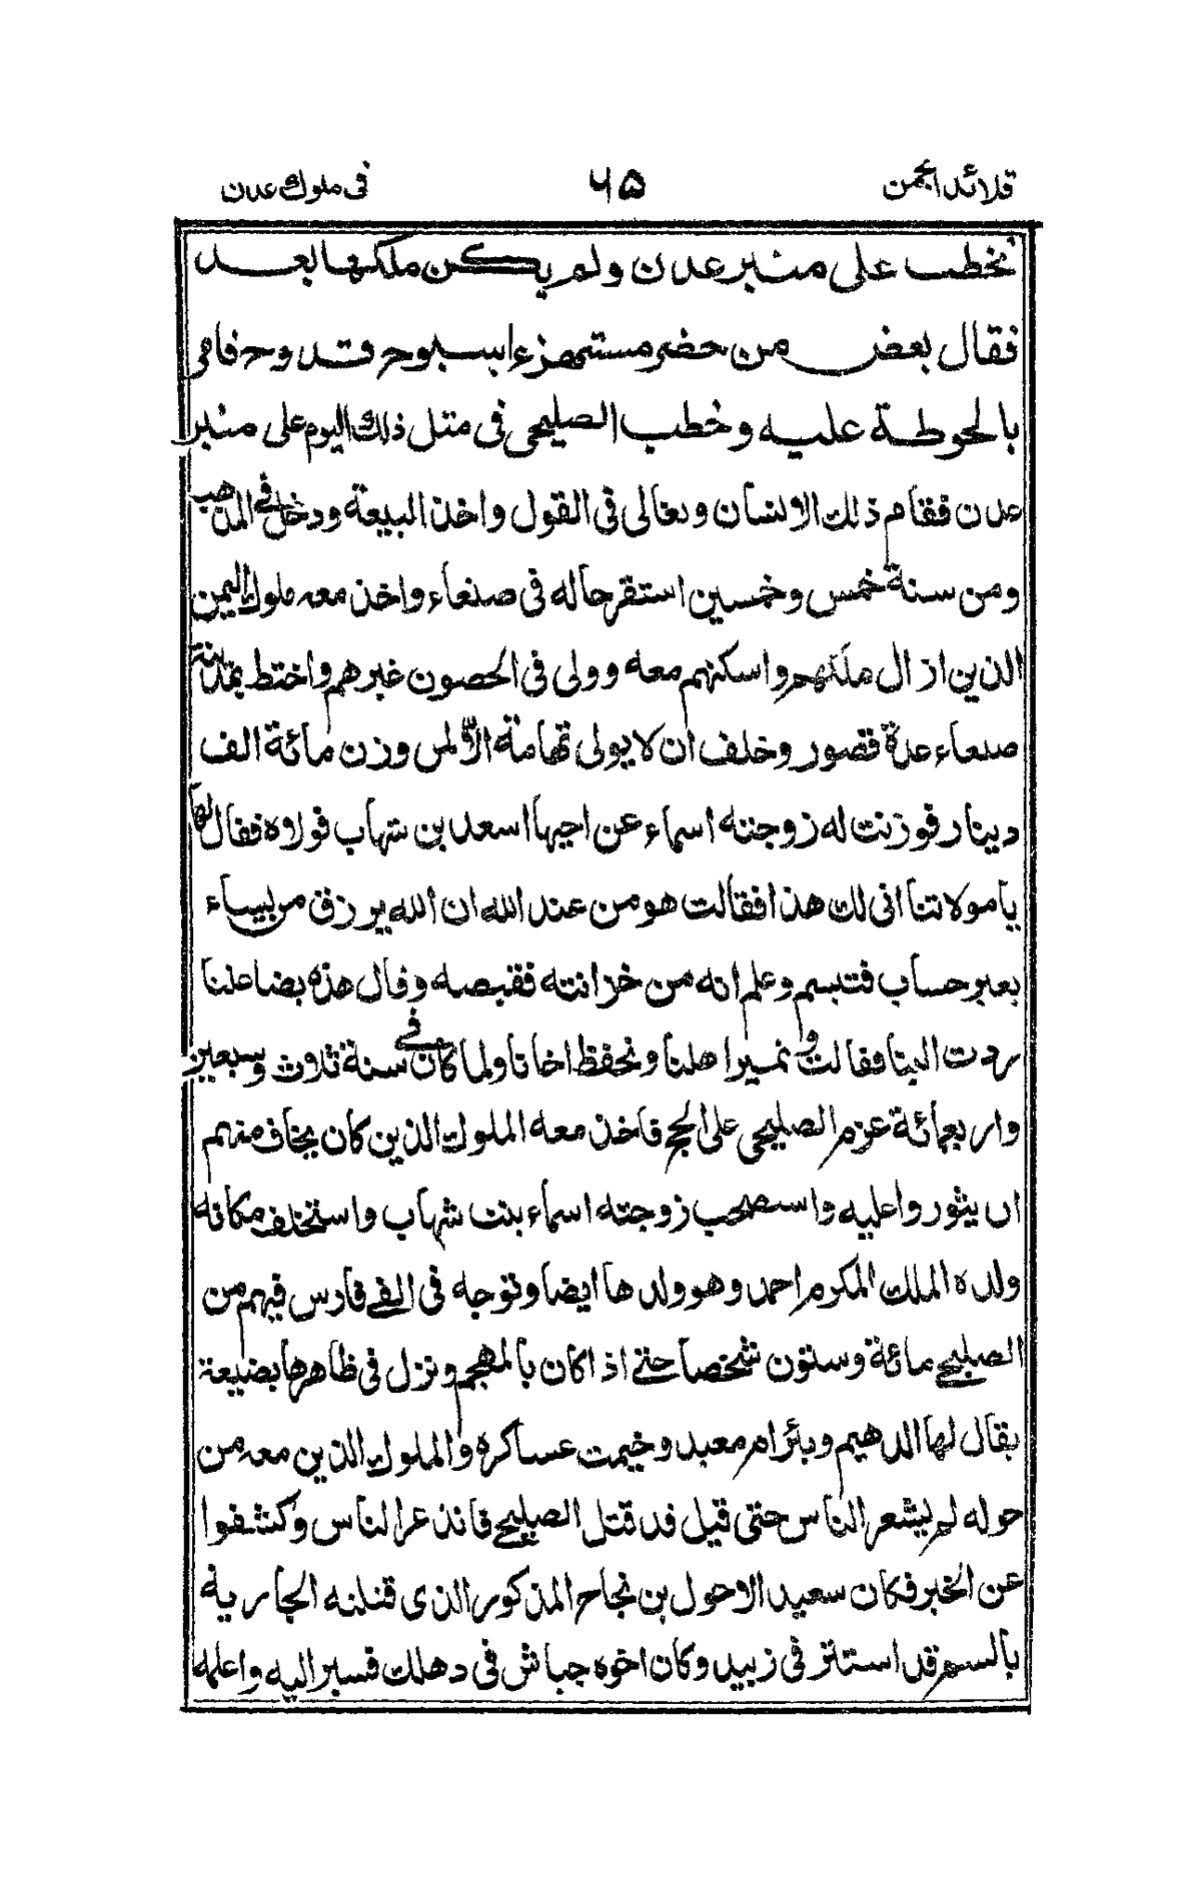 قلائد الجمن ٦٥ فى ملوك عدن
نخطب على منبر عدن ولم يكن ملكها بعد
فقال بعض من حضر مستهزءا سبوح قدوح فامر
بالحوطة عليه وخطب الصليحى فى مثل ذلك اليوم على منبر
عدن فقام ذلك الانسان وتغالى فى القول واخذ البيعة ودخل فى المذهب
ومن سنة خمس وخمسين استقر حاله فى صنعاء واخذ معه ملوك اليمن
الذين ازال ملكهم واسكنهم معه وولى فى الحصون غيرهم واختط بمدينة
صنعاء عدة قصور وحلف ان لا يولى تهامة الا لمن وزن مائة الف
دينار فوزنت له زوجته اسماء عن اخيها اسعد بن شهاب فولاه فقال لها
يا مولاتنا انى لك هذا فقالت هو من عند الله ان الله يرزق من يشاء
بغير حساب فتبسم وعلم انه من خزانته فقبضه وقال هذه بضاعتنا
ردت الينا فقالت ونمير اهلنا ونحفظ اخانا ولما كان فى سنة ثلاث وسبعين
واربعمائة عزم الصليحى على الحج فاخذ معه الملوك الذين كان يخاف منهم
ان يثوروا عليه واستصحب زوجته اسماء بنت شهاب واستخلف مكانه
ولده الملك المكرم احمد وهو ولدها ايضا وتوجه فى الفى فارس فيهم من
الصليحى مائة وستون شخصا حتى اذا كان بالمهجم ونزل فى ظاهرها بضيعة
يقال لها الدهيم وبئر ام معبد وخيمت عساكره والملوك الذين معه من
حوله لم يشعر الناس حتى قيل قد قتل الصليحى فانذعر الناس وكشفوا
عن الخبر فكان سعيد الاحول بن نجاح المذكور الذى قتلته الجارية
بالسم قد استتر فى زبيد وكان اخوه جياش فى دهلك فسير اليه واعلمه